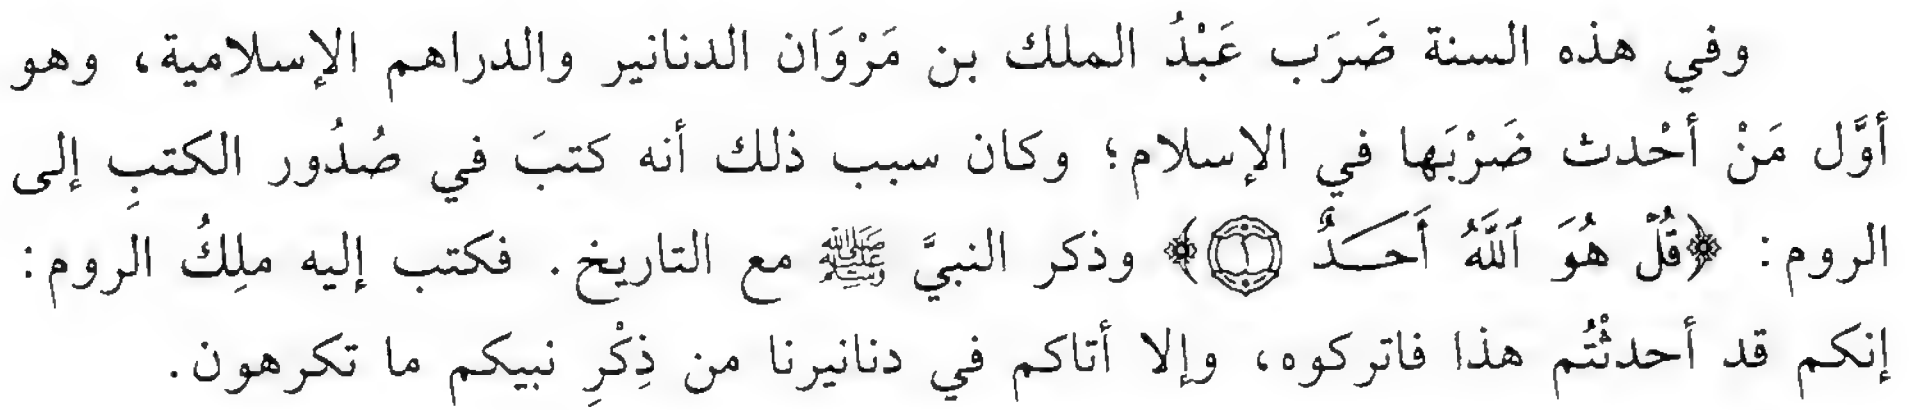 وفي هذه السنة ضَرَب عَبْدُ الملك بن مَرْوَان الدنانير والدراهم الإسلامية، وهو
أوَّل مَنْ أحْدث ضَرْبَها في الإسلام؛ وكان سبب ذلك أنه كتبَ في صُدُور الكتبِ إلى
الروم: ﴿قُلۡ هُوَ ٱللَّهُ أَحَدٌ ۝١﴾ وذكر النبيَّ ﷺ مع التاريخ. فكتب إليه ملِكُ الروم:
إنكم قد أحدثْتُم هذا فاتركوه، وإلا أتاكم في دنانيرنا من ذِكْرِ نبيكم ما تكرهون.